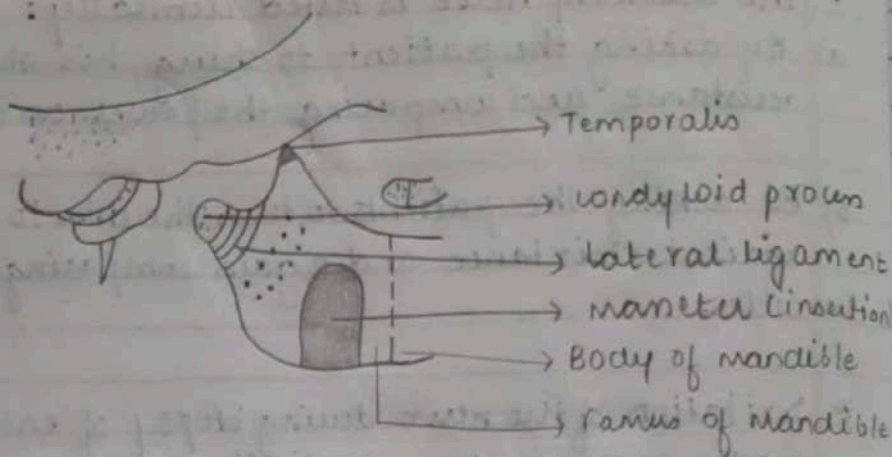 Temporalis
condyloid process
lateral ligament
masseter (insertion
Body of mandible
ramus of mandible